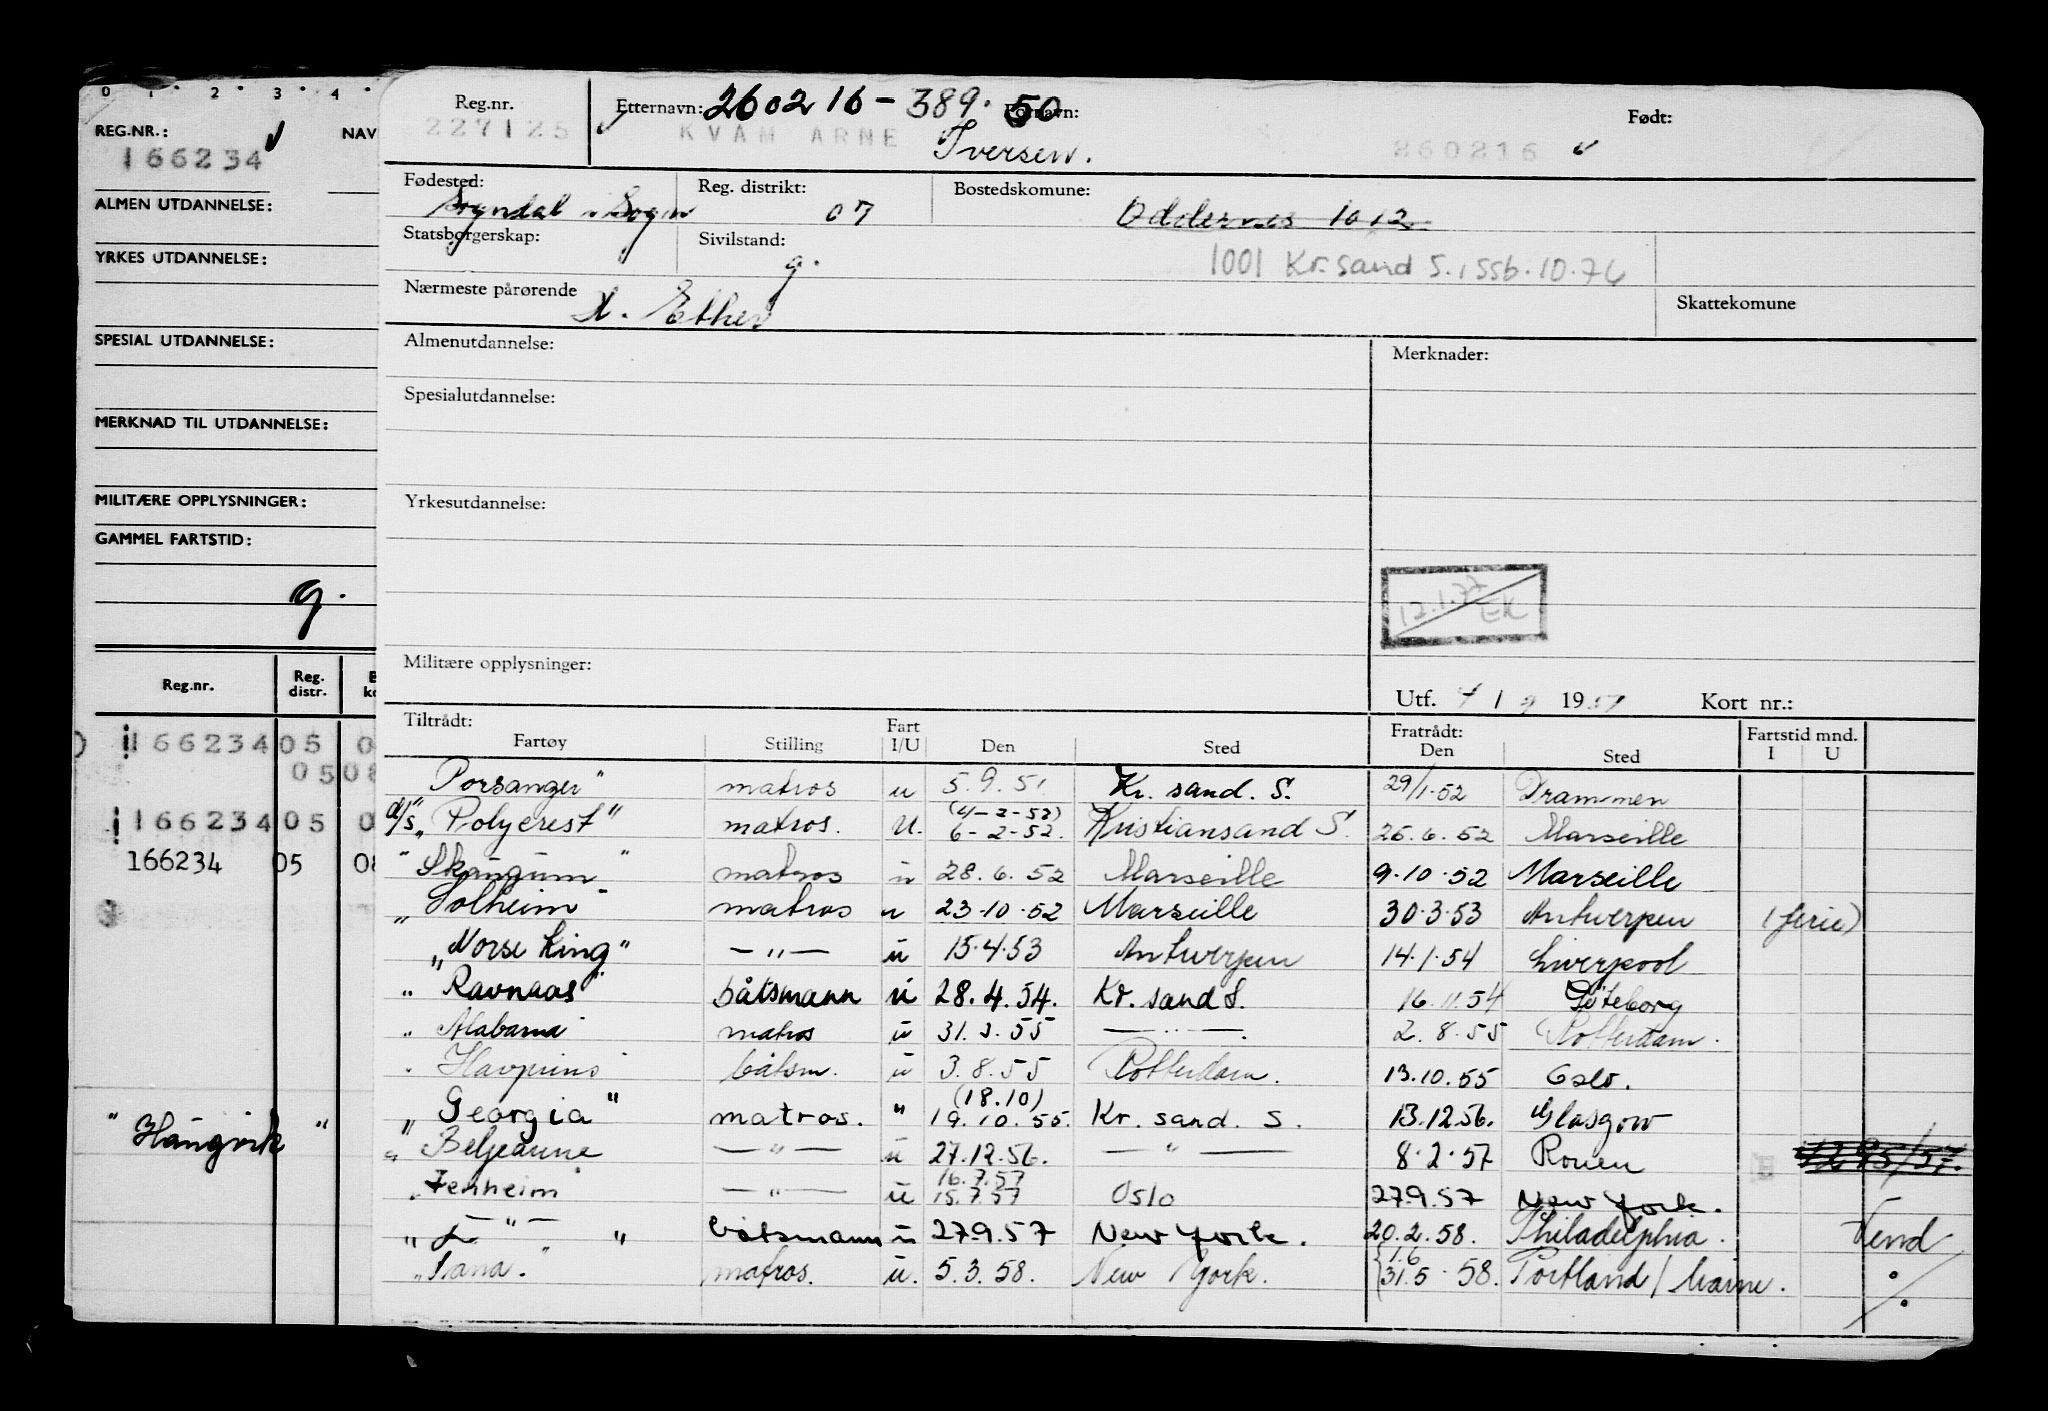 0 1 · 2 · 3 · 4 ·
REG.NR.: NAV
166234
ALMEN UTDANNELSE:
YRKES UTDANNELSE:
SPESIAL UTDANNELSE:
MERKNAD TIL UTDANNELSE:
MILITÆRE OPPLYSNINGER:
GAMMEL FARTSTID:
g.
Reg.nr. Reg. distr.
166234 05 0
05 08
166234 05 0
166234 05 08
"Haugvik"
Reg.nr. Etternavn: 260216-389.50 Fornavn: Født:
227125 KVAM ARNE Iversen. 260216
Fødested: Reg. distrikt: Bostedskomune:
Sogndal i Sogn 07 Oddernes 1012
Statsborgerskap: Sivilstand:
g. 1001 Kr.sand S. 155b.10.76
Nærmeste pårørende Skattekomune
Almenutdannelse: Merknader:
Spesialutdannelse:
Yrkesutdannelse:
12.1.77 EK
Militære opplysninger:
Utf. 7/9 1951 Kort nr.:
Tiltrådt: Fart Fratrådt: Fartstid mnd.
Fartøy Stilling I/U Den Sted Den Sted I U
Porsanger" matros u 5.9.51 Kr. sand. S. 29/1.52 Drammen
d/s "Polycrest" matros. u. (4-2-52) 6-2-52. Kristiansand S. 26.6.52 Marseille
"Skaugum" matros u 28.6.52 Marseille 9.10.52 Marseille
"Solheim" matros u 23.10.52 Marseille 30.3.53 Antwerpen (ferie)
"Norse King" — " — u 15.4.53 Antwerpen 14.1.54 Liverpool
" Ravnaas" båtsmann u 28.4.54. Kr. sand S. 16.11.54 Göteborg
" Alabama matros u 31.3.55 — " —. 2.8.55 Rotterdam.
" Havprins båtsm. u 3.8.55 Rotterdam. 13.10.55 Oslo.
" Georgia" matros. " (18.10) 19.10.55. Kr. sand. S. 13.12.56. Glasgow
" Beljeanne — " — u 27.12.56. — " — 8.2.57 Rouen
" Fenheim — " — u 16.7.57 15.7.57 Oslo 27.9.57 New York.
" — " — " båtsmann u 27.9.57 New York. 20.2.58. Philadelphia. Vend
"Tana." matros. u. 5.3.58. New York. {1.6 31.5.58. Portland/Maine.